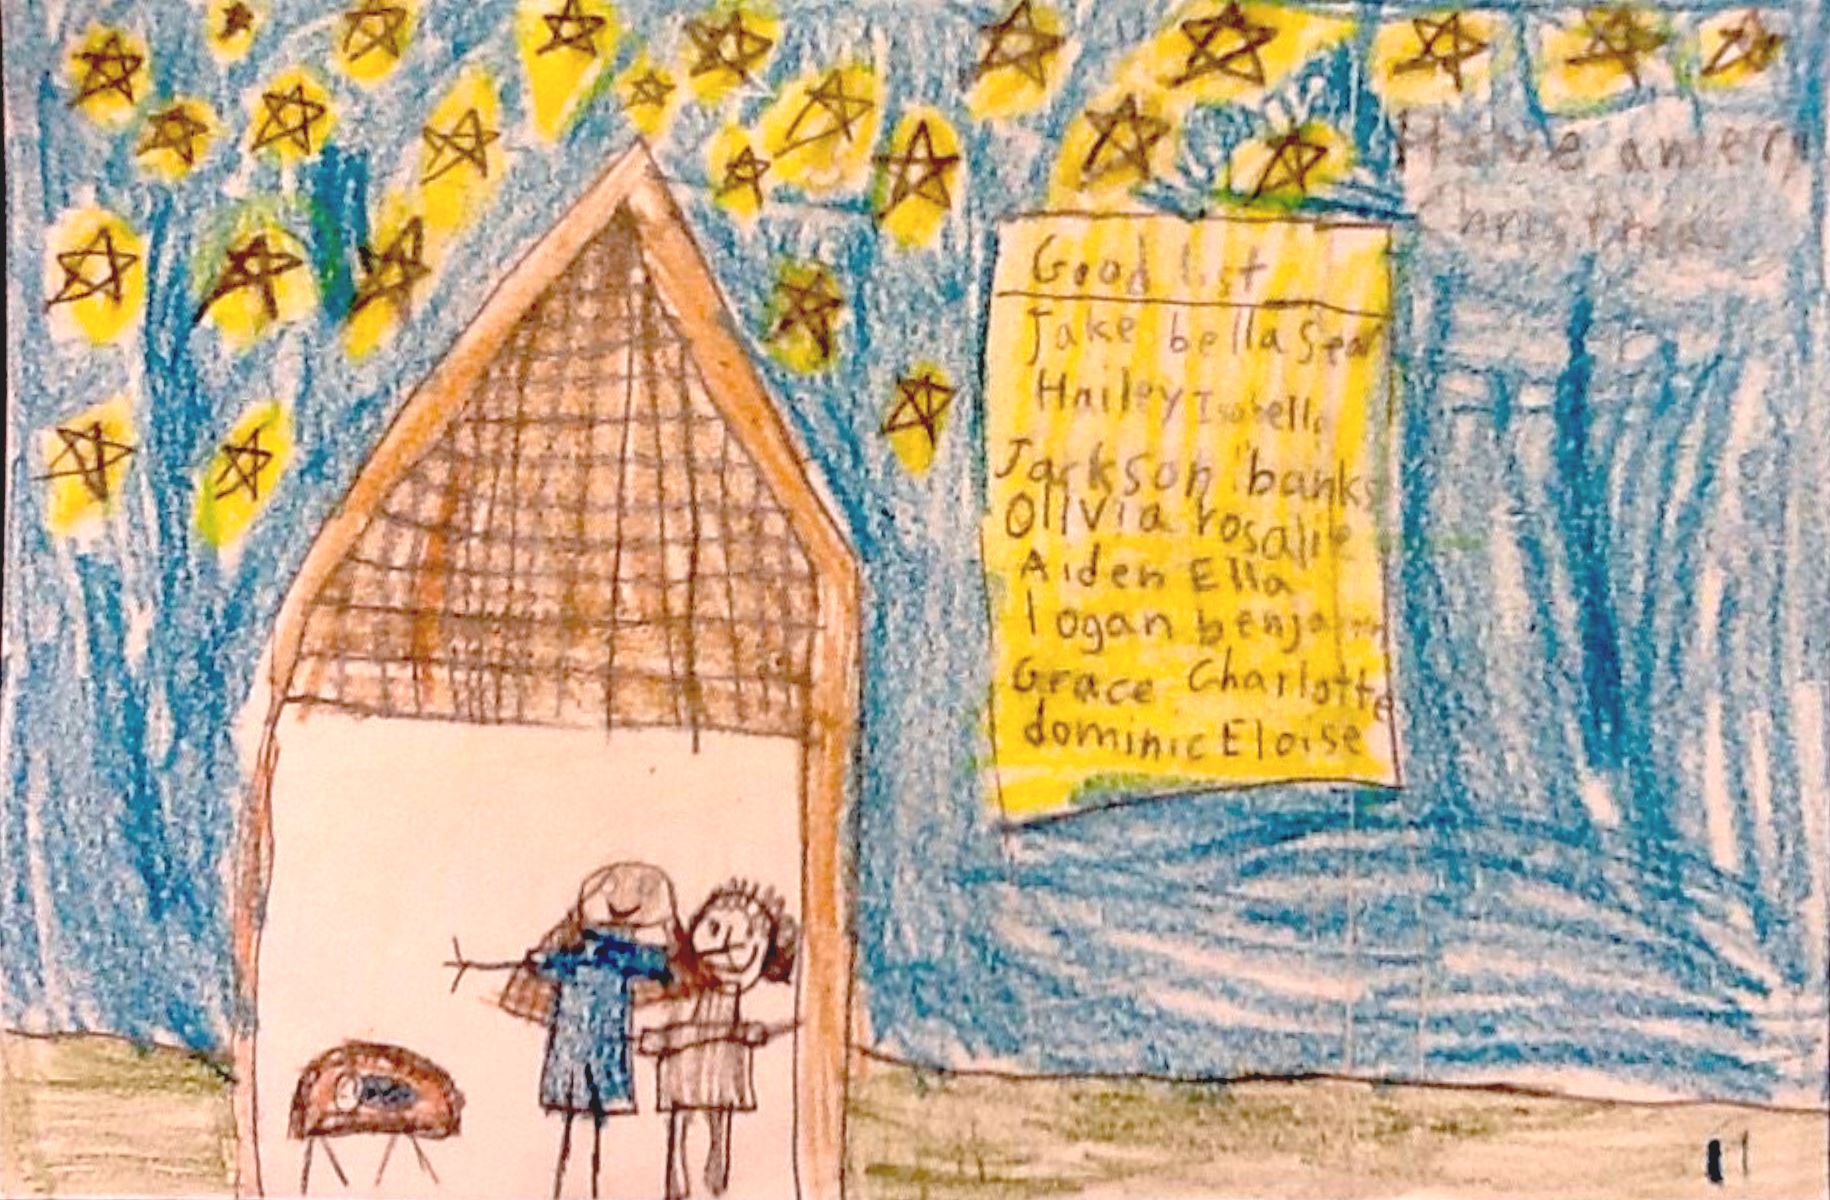 Have a mery
Christmas
Good list
Jake bella Sean
Hailey Isabella
Jackson banks
Olivia rosalie
Aiden Ella
logan benjamin
Grace Charlotte
dominic Eloise